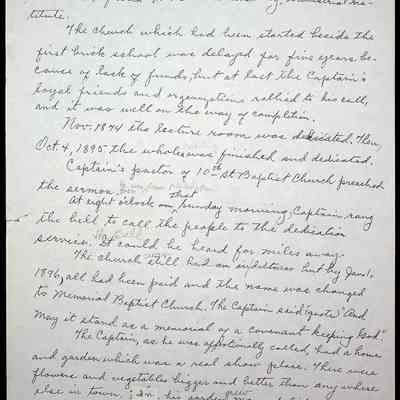 titute.
The church which had been started beside the
first brick school was delayed for five years be-
cause of lack of funds, but at last the Captain's
loyal friends and organizations rallied to his call,
and it was well on the way of completion.
Nov. 1894 the lecture room was dedicated. Then,
Oct 4, 1895 the whole was finished and dedicated.
Captain's pastor of 10th St Baptist Church preached
the sermon
that
At eight o'clock on Sunday morning, Captain rang
the bell to call the people to the dedication
service. It could be heard for miles away.
The church still had an indebtness but by Jan 1,
1896, all had been paid and the name was changed
to Memorial Baptist Church. The Captain said "quote" And
may it stand as a memorial of a covenant keeping God."
The Captain, as he was affectionally called, had a home
and garden which was a real show place. There were
flowers and vegetables bigger and better than any where
else in town. In his garden grew